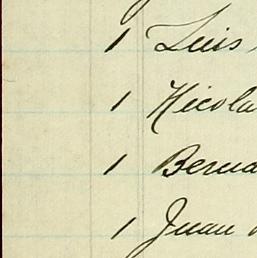 1 Luis
1 Nicola
1 Berna
1 Juan